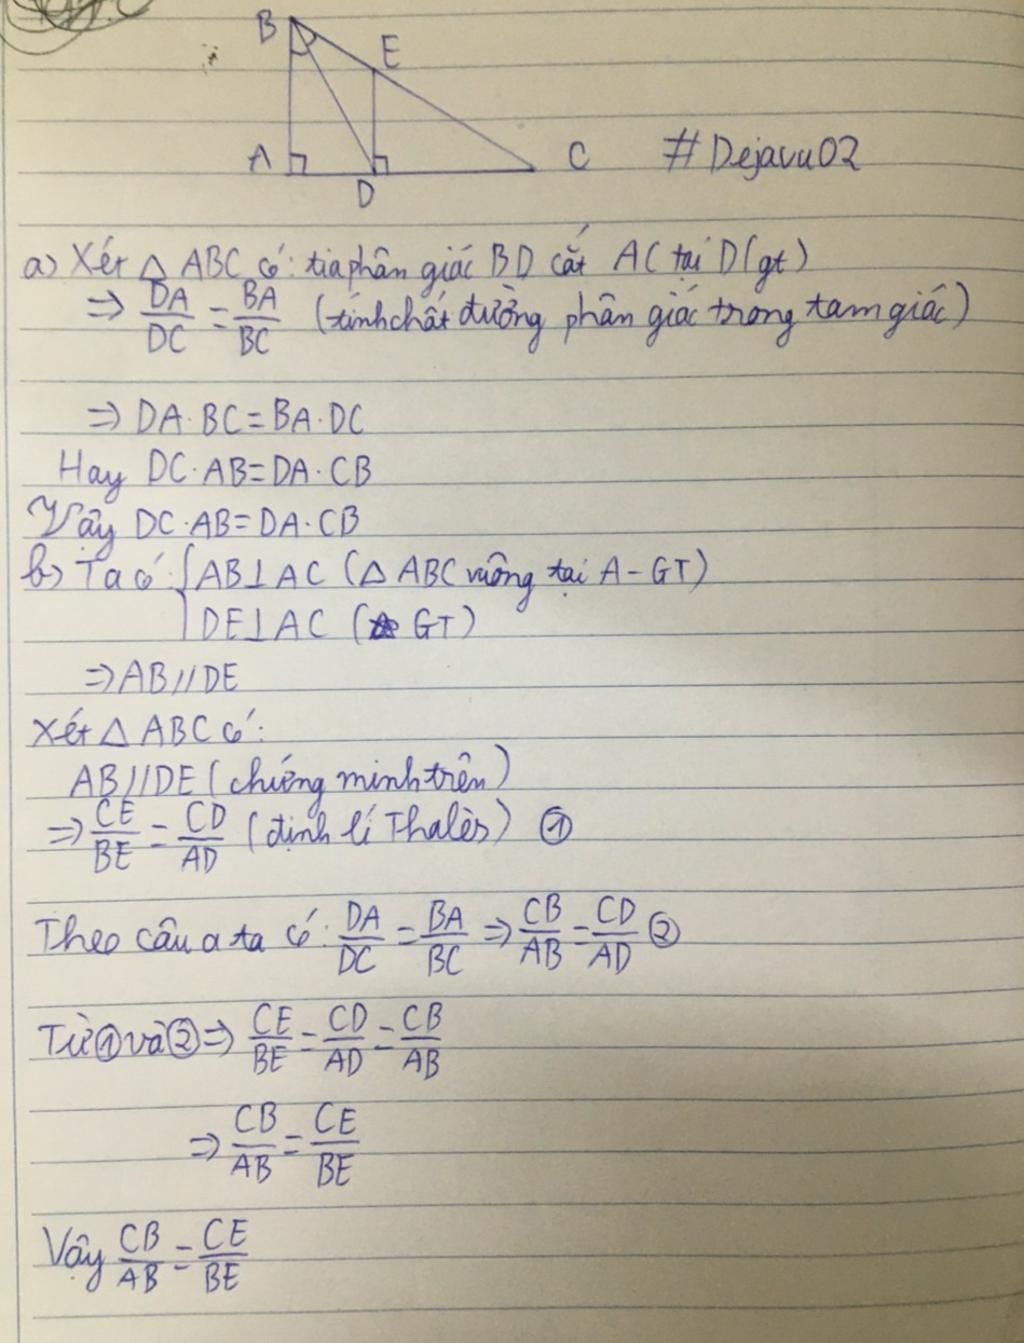 B
E
A
D
C
#Dejavu02
a) Xét △ ABC có: tia phân giác BD cắt AC tại D(gt)
⇒ DA/DC = BA/BC (tính chất đường phân giác trong tam giác)
⇒ DA·BC=BA·DC
Hay DC·AB=DA·CB
Vậy DC·AB=DA·CB
b) Ta có: { AB⊥AC (△ ABC vuông tại A-GT)
DE⊥AC (GT)
⇒AB//DE
Xét △ ABC có:
AB//DE (chứng minh trên)
⇒ CE/BE = CD/AD (định lí Thalès) ①
Theo câu a ta có: DA/DC = BA/BC ⇒ CB/AB = CD/AD ②
Từ ① và ② ⇒ CE/BE = CD/AD = CB/AB
⇒ CB/AB = CE/BE
Vậy CB/AB = CE/BE